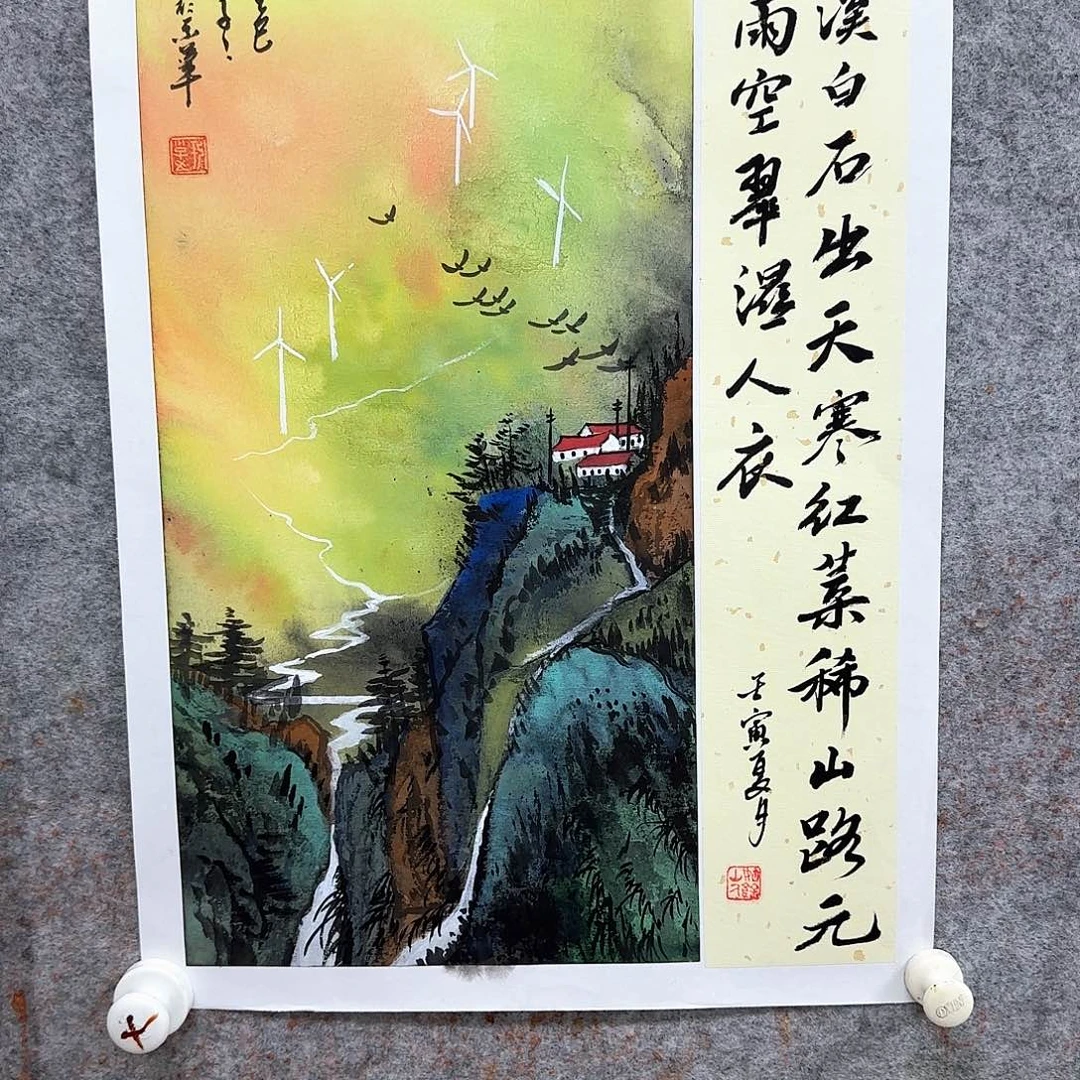 溪白石出天寒红葉稀山路元
雨空翠濕人衣
壬寅夏月